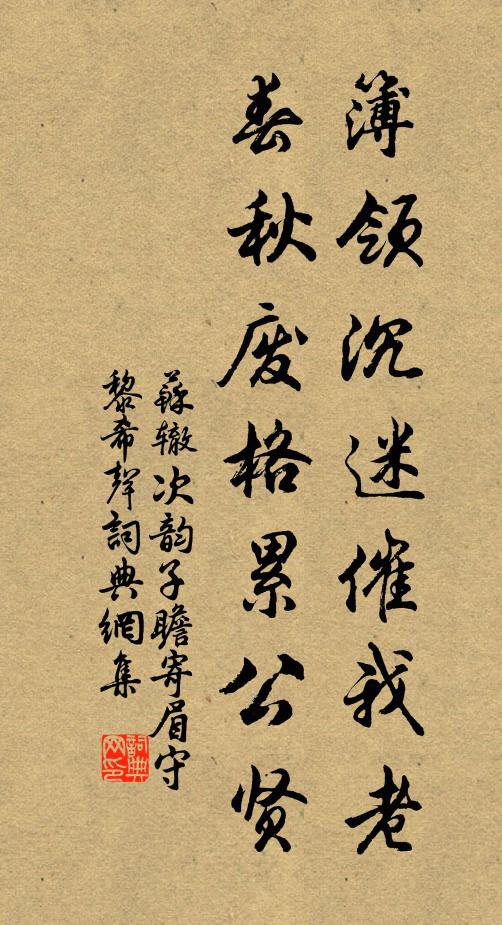 簿领沉迷催我老
春秋废格累公贤
蘇辙次韵子瞻寄眉守
黎希聲詞典網集
詞典网印